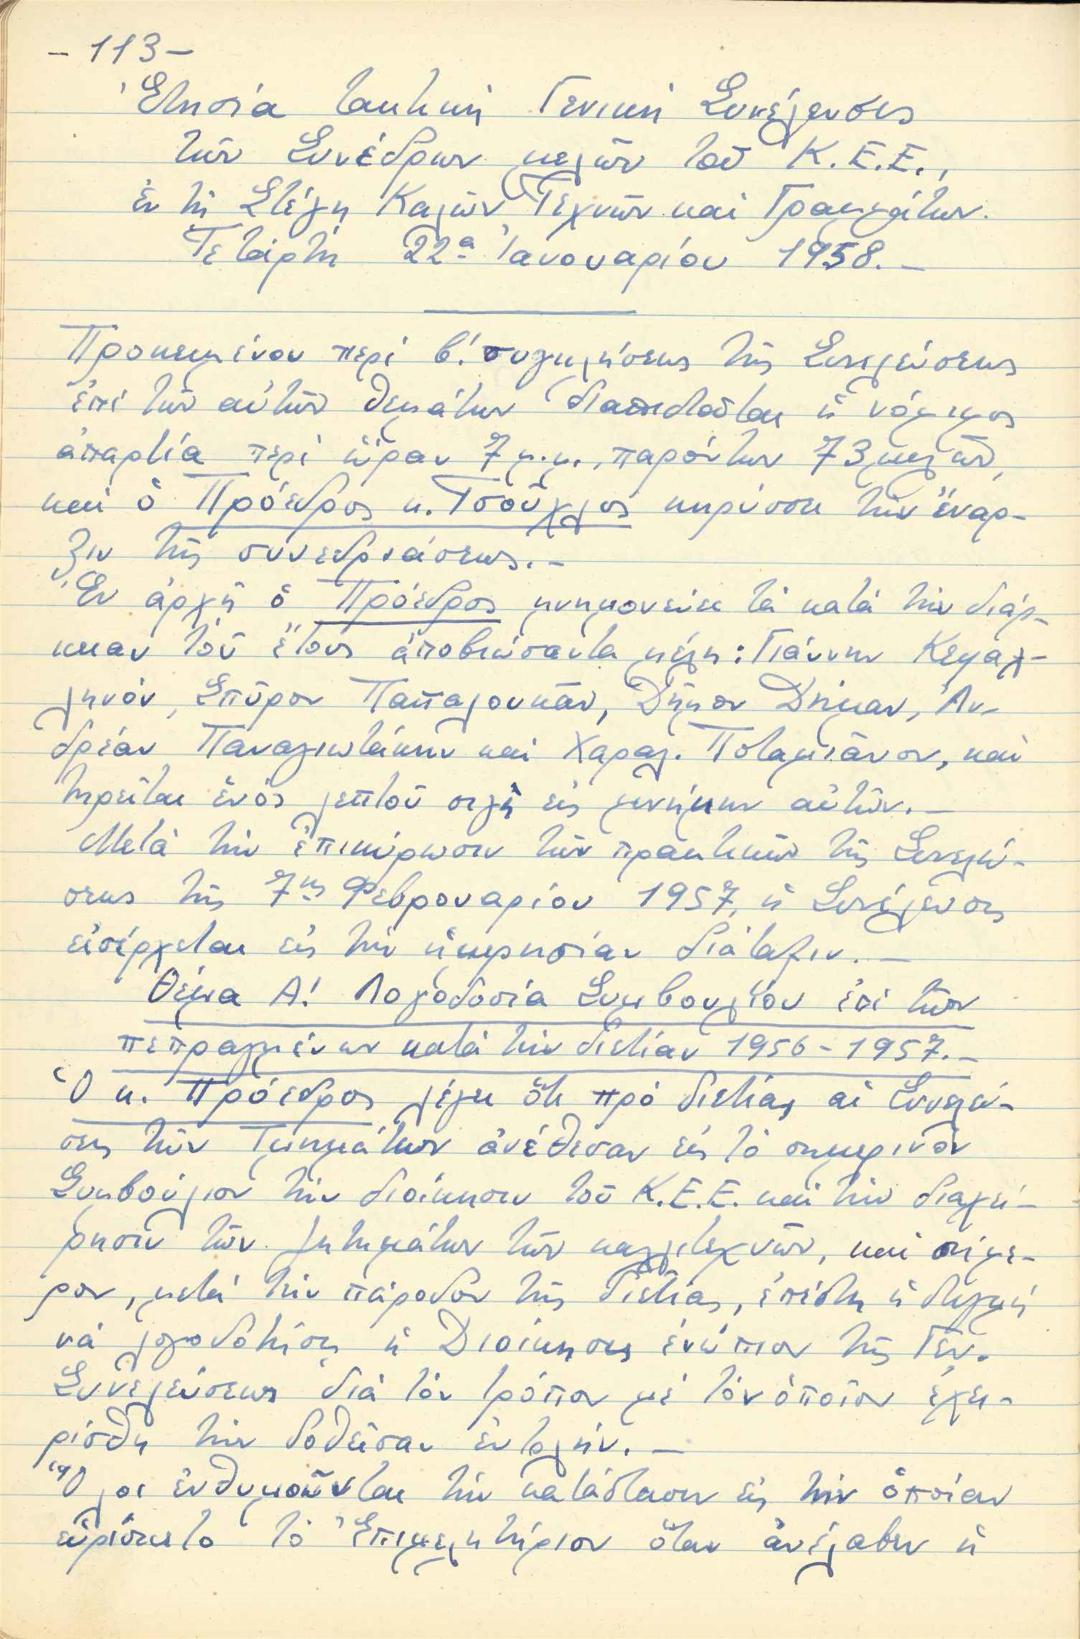 - 113 -
Ἐτησία τακτική Γενική Συνέλευσις
τῶν Συνέδρων μελῶν τοῦ Κ.Ε.Ε.,
ἐν τῇ Στέγῃ Καλῶν Τεχνῶν καί Γραμμάτων.
Τετάρτη 22α Ἰανουαρίου 1958.-
Προκειμένου περί β! συγκλήσεως τῆς Συνελεύσεως
ἐπί τῶν αὐτῶν θεμάτων διαπιστοῦται ἡ νόμιμος
ἀπαρτία περί ὥραν 7 μ.μ., παρόντων 73 μελῶν,
καί ὁ Πρόεδρος κ. Τσοῦχλος κηρύσσει τήν ἔναρ-
ξιν τῆς συνεδριάσεως.-
Ἐν ἀρχῇ ὁ Πρόεδρος μνημονεύει τά κατά τήν διάρ-
κειαν τοῦ ἔτους ἀποβιώσαντα μέλη: Γιάννην Κεφαλ-
ληνόν, Σπῦρον Παπαλουκᾶν, Δῆμον Δήμαν, Ἀν-
δρέαν Παναγιωτάκην καί Χαραλ. Ποταμιᾶνον, καί
τηρεῖται ἑνός λεπτοῦ σιγή εἰς μνήμην αὐτῶν.-
Μετά τήν ἐπικύρωσιν τῶν πρακτικῶν τῆς Συνελεύ-
σεως τῆς 7ης Φεβρουαρίου 1957, ἡ Συνέλευσις
εἰσέρχεται εἰς τήν ἡμερησίαν διάταξιν.-
Θέμα Α! Λογοδοσία Συμβουλίου ἐπί τῶν
πεπραγμένων κατά τήν διετίαν 1956-1957.-
Ὁ κ. Πρόεδρος λέγει ὅτι πρό διετίας αἱ Συνελεύ-
σεις τῶν Τμημάτων ἀνέθεσαν εἰς τό σημερινόν
Συμβούλιον τήν διοίκησιν τοῦ Κ.Ε.Ε. καί τήν διαχεί-
ρησιν τῶν ζητημάτων τῶν καλλιτεχνῶν, καί σήμε-
ρον, μετά τήν πάροδον τῆς διετίας, ἐπέστη ἡ στιγμή
νά λογοδοτήσῃ ἡ Διοίκησις ἐνώπιον τῆς Γεν.
Συνελεύσεως διά τόν τρόπον μέ τόν ὁποῖον ἐχει-
ρίσθη τήν δοθεῖσαν ἐντολήν.-
Ὅλοι ἐνθυμοῦνται τήν κατάστασιν εἰς τήν ὁποίαν
εὑρίσκετο τό Ἐπιμελητήριον ὅταν ἀνέλαβεν ἡ